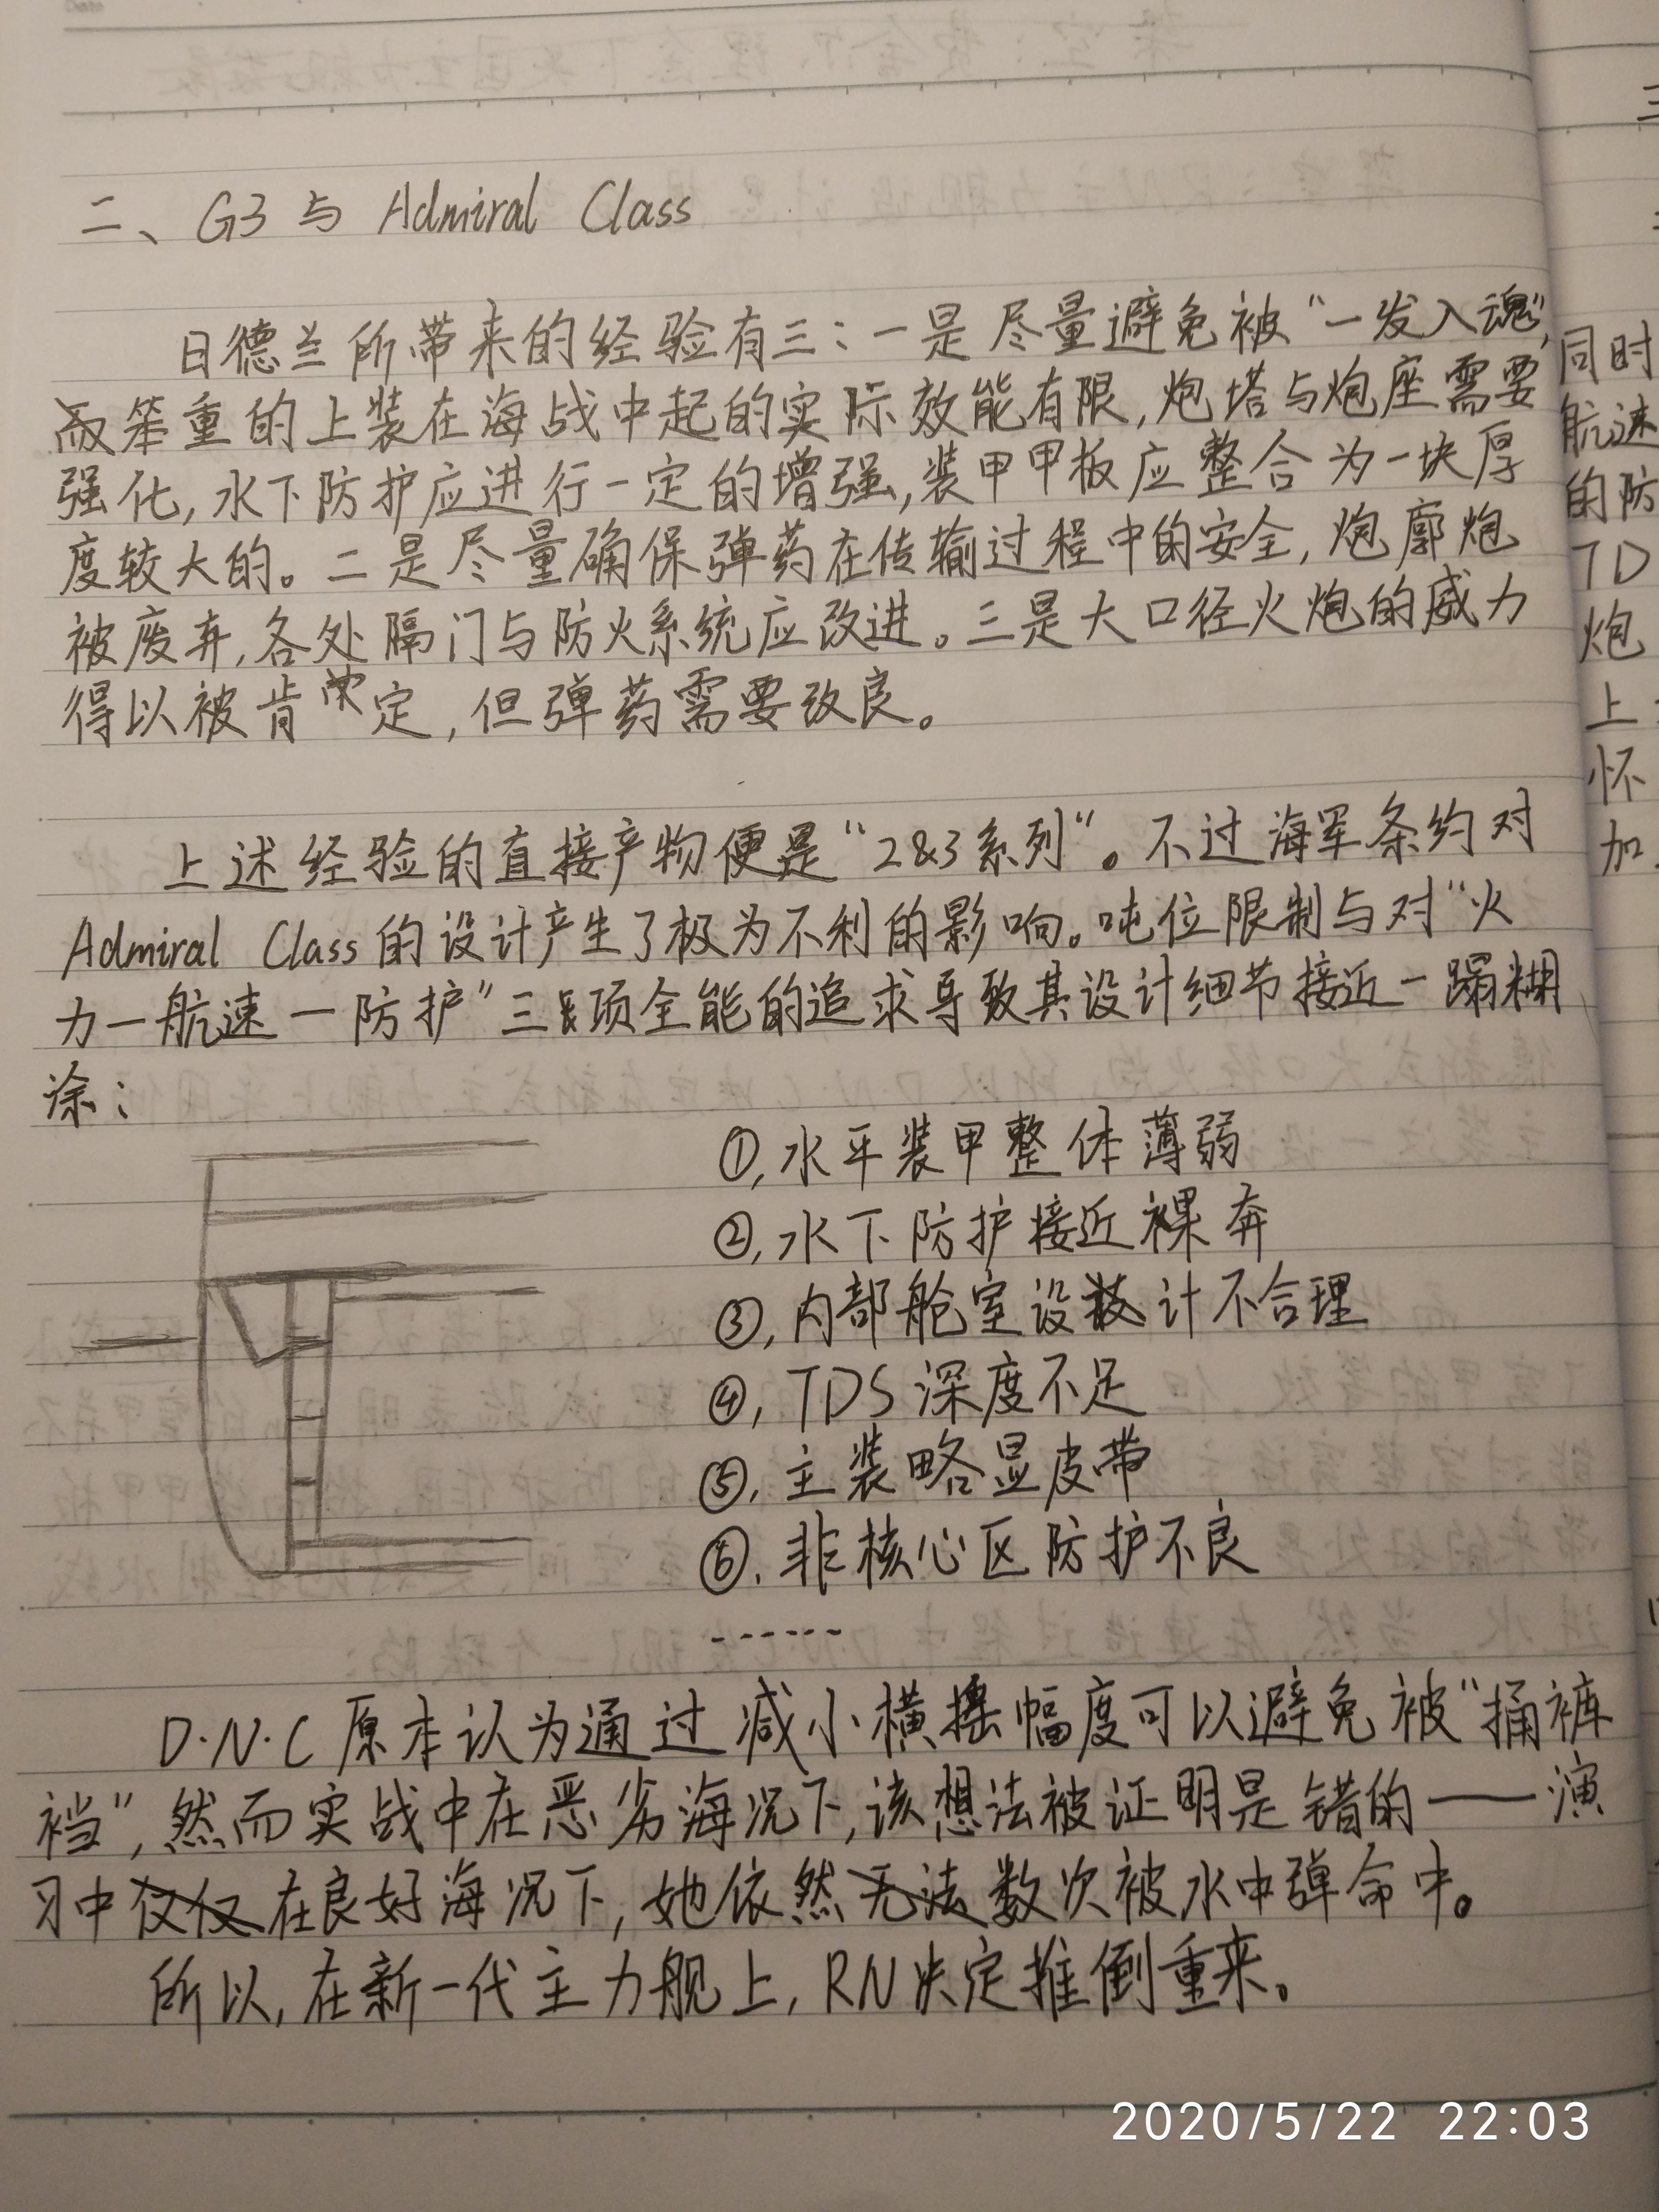 二、G3 与 Admiral Class
日德兰所带来的经验有三：一是尽量避免被“一发入魂”，
而笨重的上装在海战中起的实际效能有限，炮塔与炮座需要
强化，水下防护应进行一定的增强，装甲甲板应整合为一块厚
度较大的。二是尽量确保弹药在传输过程中的安全，炮廓炮
被废弃，各处隔门与防火系统应改进。三是大口径火炮的威力
得以被肯定，但弹药需要改良。
上述经验的直接产物便是“2&3系列”。不过海军条约对
Admiral Class的设计产生了极为不利的影响。吨位限制与对“火
力—航速—防护”三项全能的追求导致其设计细节接近一蹋糊
涂：
①，水平装甲整体薄弱
②，水下防护接近裸奔
③，内部舱室设计不合理
④，TDS深度不足
⑤，主装略显皮带
⑥，非核心区防护不良
------
D·N·C原本认为通过减小横摇幅度可以避免被“捅裤
裆”，然而实战中在恶劣海况下，该想法被证明是错的——演
习中在良好海况下，她依然数次被水中弹命中。
所以，在新一代主力舰上，RN决定推倒重来。
三
同时
航速
的防
TD
炮
上
怀
加
2020/5/22 22:03